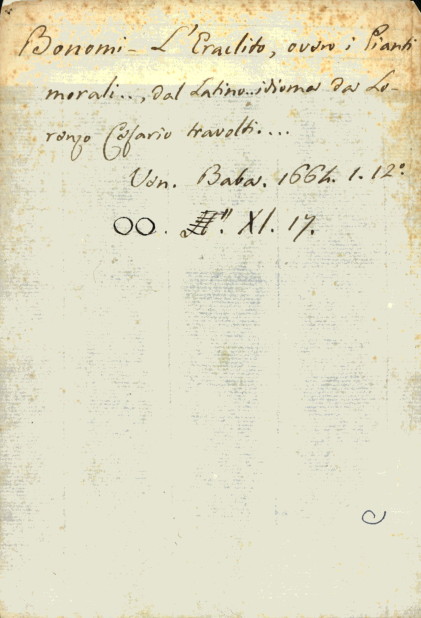 Bonomi - L'Eraclito, overo i Pianti
morali.., dal Latino..idioma da Lo-
renzo Cesario travolti....
Ven. Baba. 1664. 1. 12°.
OO. XI. 17.